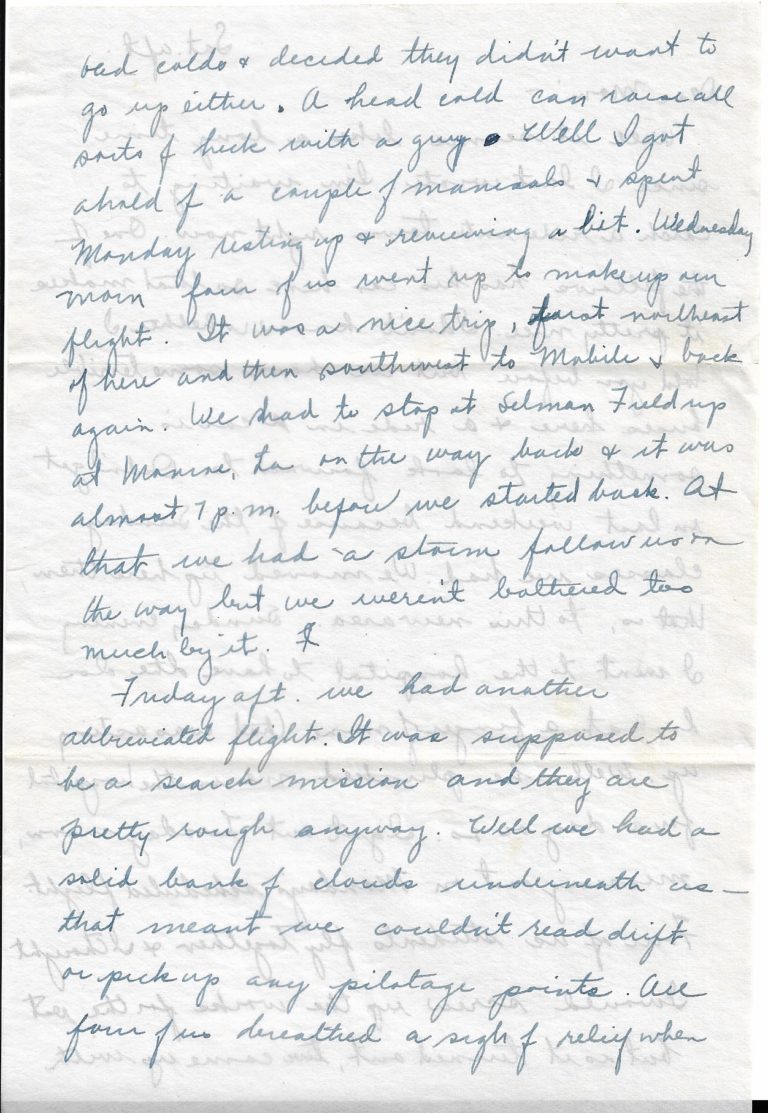 bad colds & decided they didn't want to
go up either. A head cold can raise all
sorts of heck with a guy. Well I got
ahold of a couple of manuals & spent
Monday resting up & reviewing a bit. Wednesday
morn four of us went up to make up our
flight. It was a nice trip, first northeast
of here and then southwest to Mobile & back
again. We had to stop at Selman Field up
at Monroe, La on the way back & it was
almost 7 p.m. before we started back. At
that we had a storm follow us on
the way but we weren't bothered too
much by it. I
Friday aft. we had another
abbreviated flight. It was supposed to
be a search mission and they are
pretty rough anyway. Well we had a
solid bank of clouds underneath us —
that meant we couldn't read drift
or pick up any pilotage points. All
four of us breathed a sigh of relief when